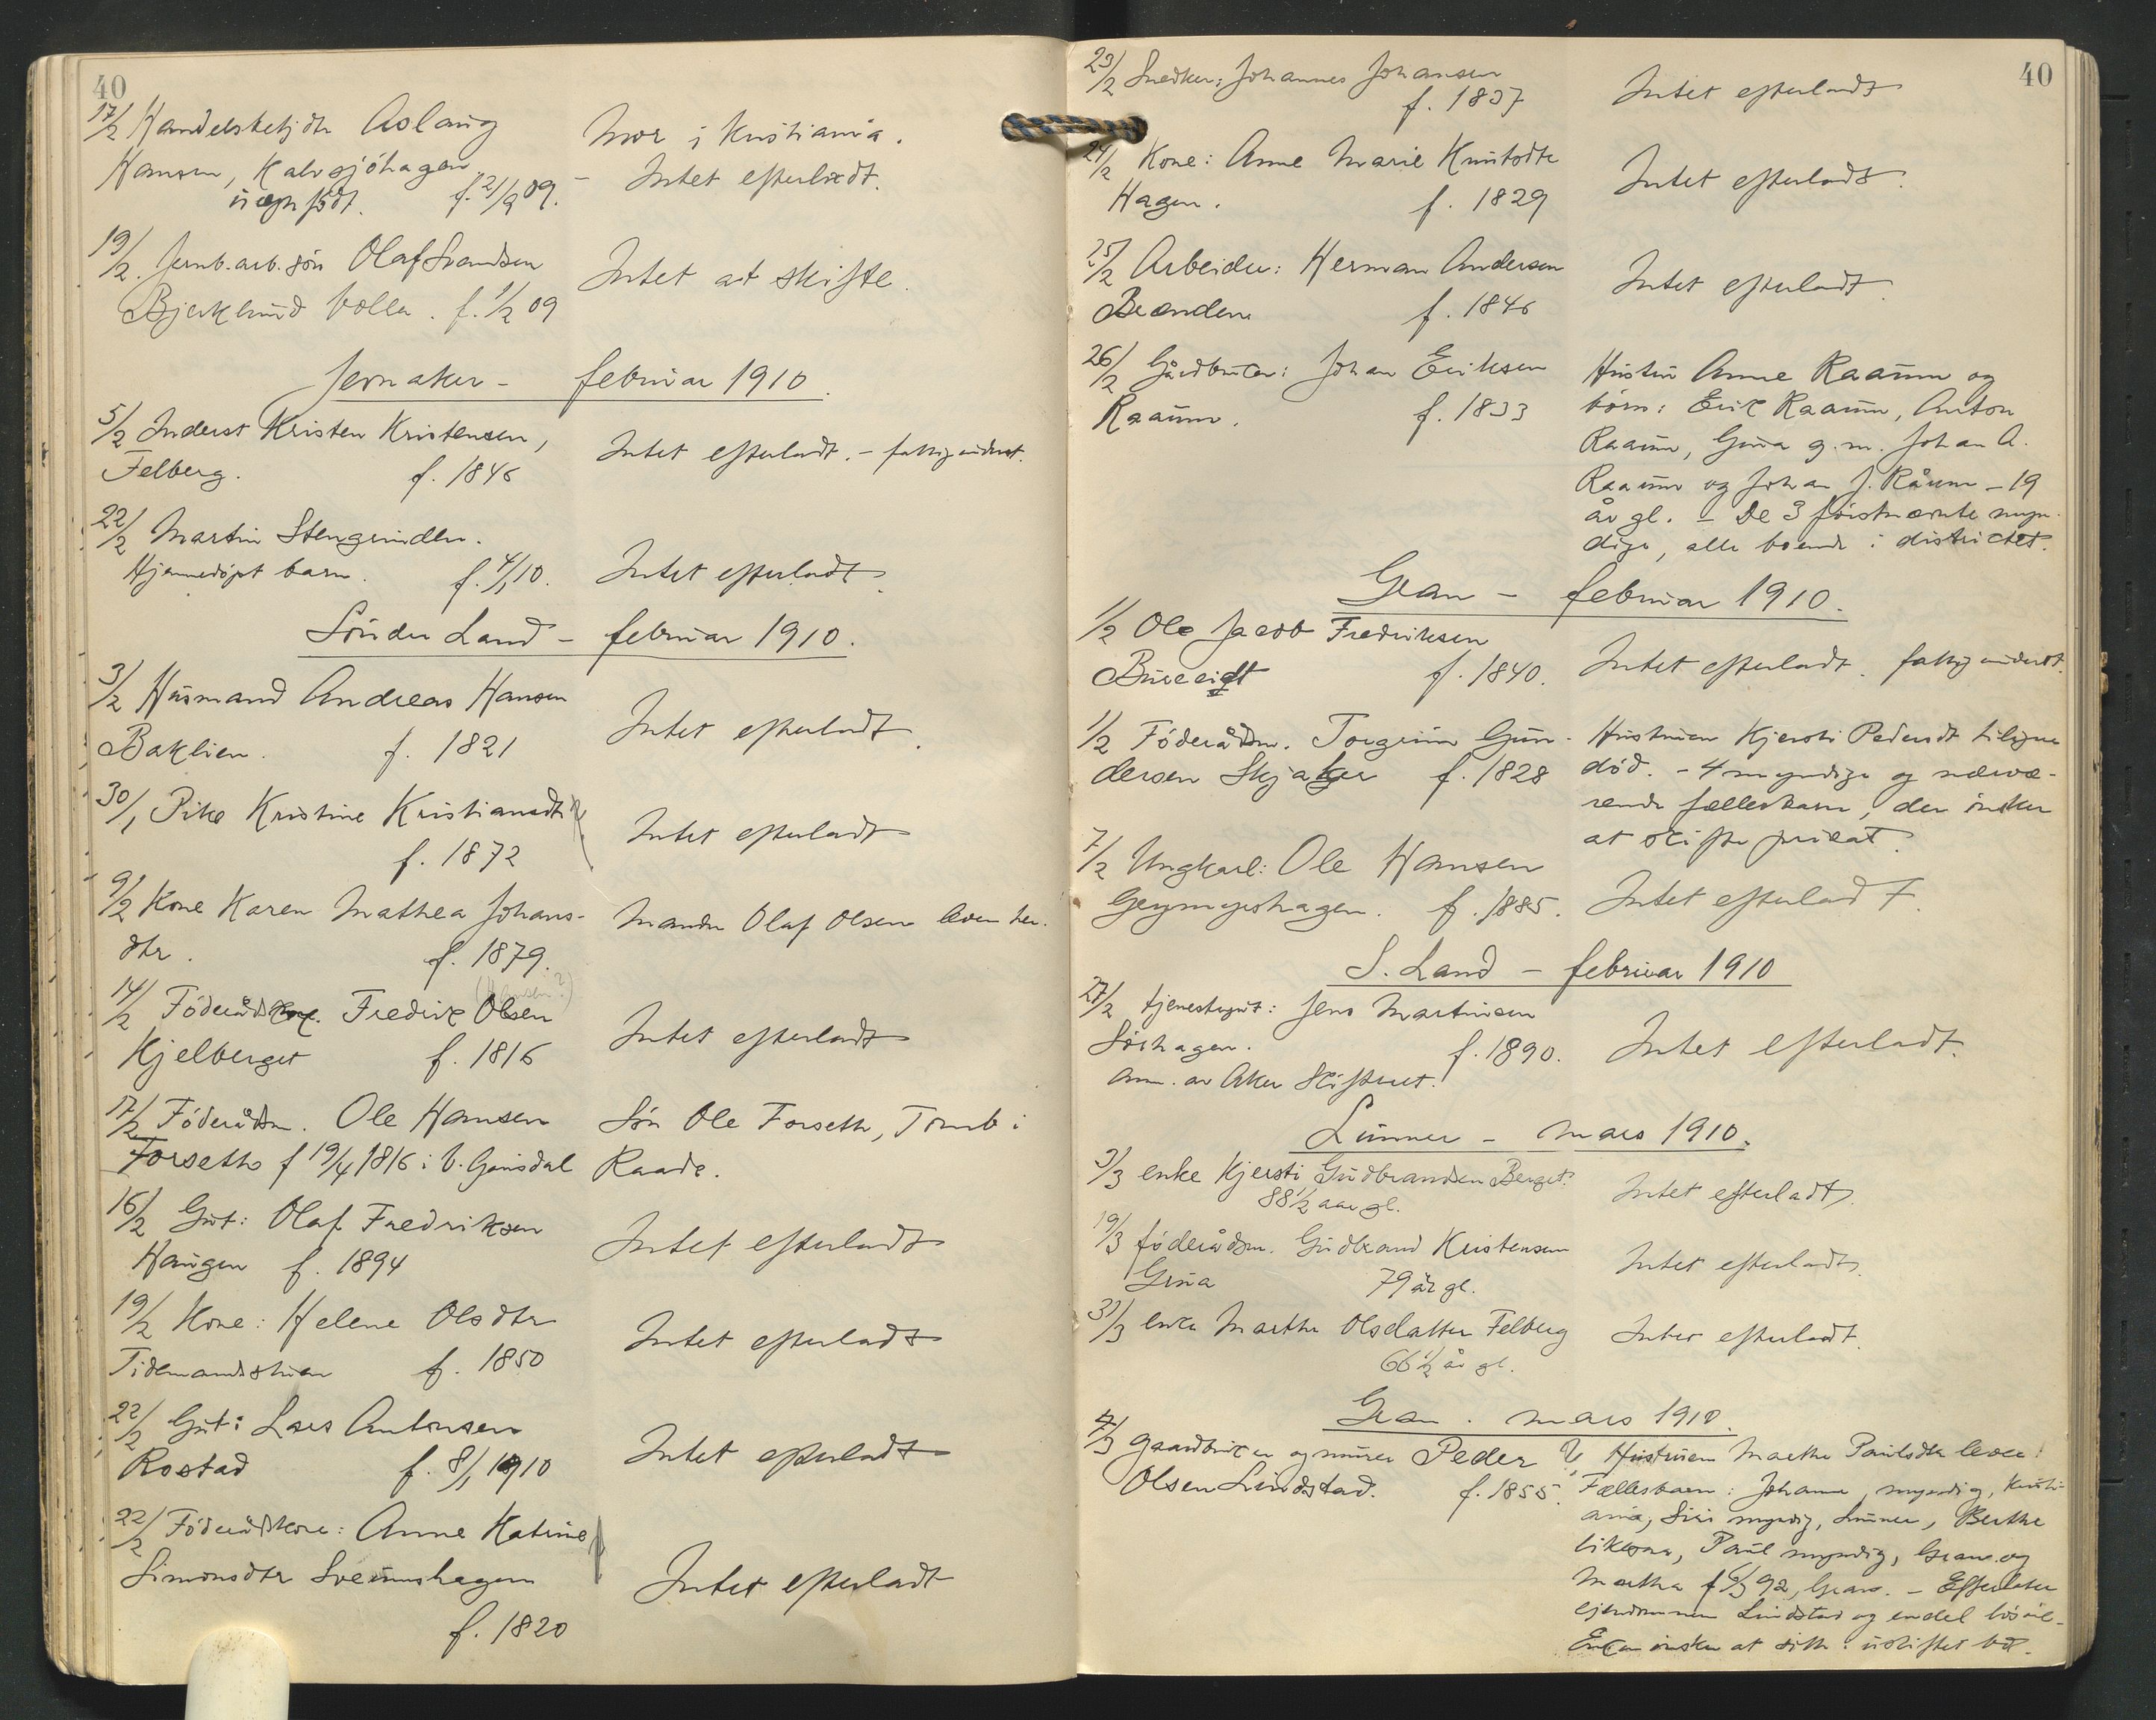 40
17/2 Handelsbetj dtr Aslaug
Hansen, Kalvsjöhagen
uegte født. f. 2/9 09.
Mor i Kristiania.
- Intet efterladt.
19/2. Jernb. arb. sön Olaf Svendsen
Bjerklund Volla. f. 1/2 09
Intet at skifte.
Jevnaker - februar 1910.
5/2 Inderst Kristen Kristensen,
Felberg. f. 1846
Intet efterladt. - fattig underst.
22/2 Martin Stengrinden.
Hjemmedöpt barn. f. 4/1 10.
Intet efterladt.
Söndre Land - februar 1910.
3/2 Husmand Andreas Hansen
Baklien. f. 1821
Intet efterladt.
30/1 Pike Kristine Kristiansdtr
f. 1872
Intet efterladt
9/2 Kone Karen Mathea Johans-
dtr. f. 1879.
Manden Olaf Olsen lever her.
14/2 Föderåds Fredrik Olsen
Kjelberget f. 1816
Intet efterladt
17/2 Föderådsm. Ole Hansen
Forseth f 19/4 1816 i V. Gausdal
Sön Ole Forseth, Tomb i
Raade.
16/2 Gut: Olaf Fredriksen
Haugen f. 1894
Intet efterladt
19/2 Kone: Helene Olsdtr
Tidemandstuen f. 1850
Intet efterladt
22/2 Gut: Lars Antonsen
Rostad f. 8/1 1910
Intet efterladt
22/2 Föderådskone: Anne Katrine
Simonsdtr Sveumshagen
f. 1820
Intet efterladt
40
23/2 Snedker: Johannes Johansen
f. 1837
Intet efterladt
24/2 Kone: Anne Marie Knutsdtr
Hagen. f. 1829
Intet efterladt.
25/2 Arbeider: Herman Andersen
Brænden f. 1846
Intet efterladt
26/2 Gårdbruker: Johan Eriksen
Raaum. f. 1833
Hustru Anne Raaum og
börn: Erik Raaum, Anton
Raaum, Gina g. m. Johan A.
Raaum og Johan J. Råum - 19
år gl. - De 3 förstnævnte myn-
dige, alle boende i districtet.
Gran - februar 1910.
1/2 Ole Jacob Fredriksen
f. 1840.
Intet efterladt. fattig underst.
1/2 Föderådsm. Torgrim Gun-
dersen Skjaker f. 1828
Hustruen Kjersti Pedersdt tilligne
död. - 4 myndige og nærvæ-
rende fællesbarn, der önsker
at skifte privat.
7/2 Ungkarl: Ole Hansen
Grymyrhagen. f. 1885.
Intet efterladt.
S. Land - februar 1910
27/2 tjenestegut: Jens Martinsen
Sörhagen. f. 1890.
Anm. av Aker Skifteret.
Intet efterladt.
Lunner - mars 1910.
3/3 enke Kjersti Gudbrandsen Berget.
88 1/2 aar gl.
Intet efterladt.
19/3 föderådsm. Gudbrand Kristensen
Grua 79 år gl.
Intet efterladt.
31/3 enke Marthe Olsdatter Felberg
66 1/2 år gl.
Intet efterladt.
Gran. mars 1910.
4/3 Gaardbruker og murer Peder
Olsen Lindstad. f. 1855.
Hustruen Marthe Paulsdtr lever.
Fællesbarn: Johanne, myndig, Kristi-
ania, Siri myndig, Lunner, Berthe
likesaa, Paul myndig, Gran og
Martha f 6/3 92, Gran. - Efterlater
eiendommen Lindstad og endel lösöre.
Enken önsker at sitte i uskiftet bo.